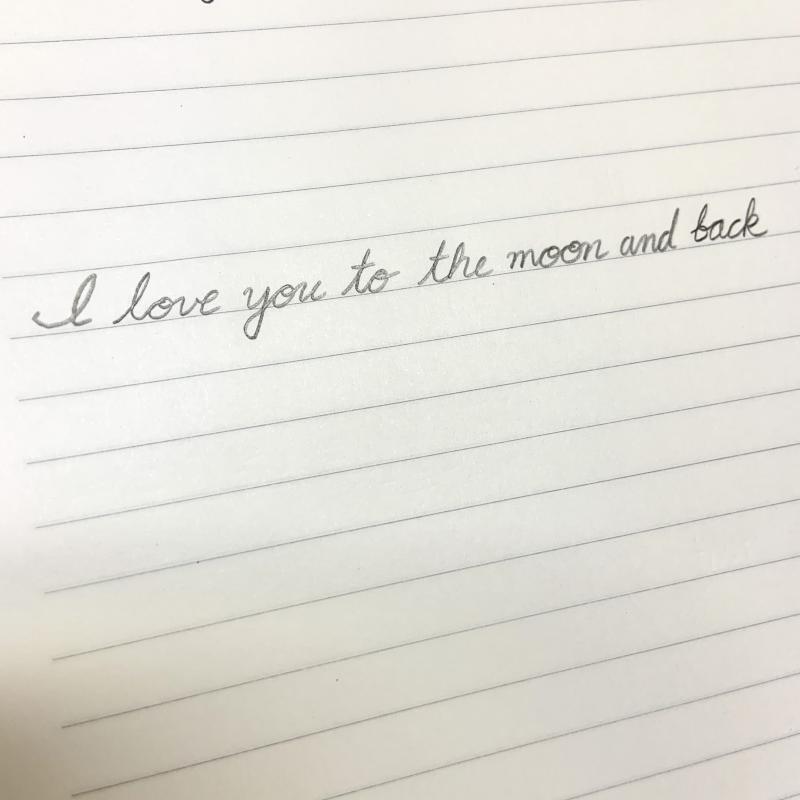 I love you to the moon and back